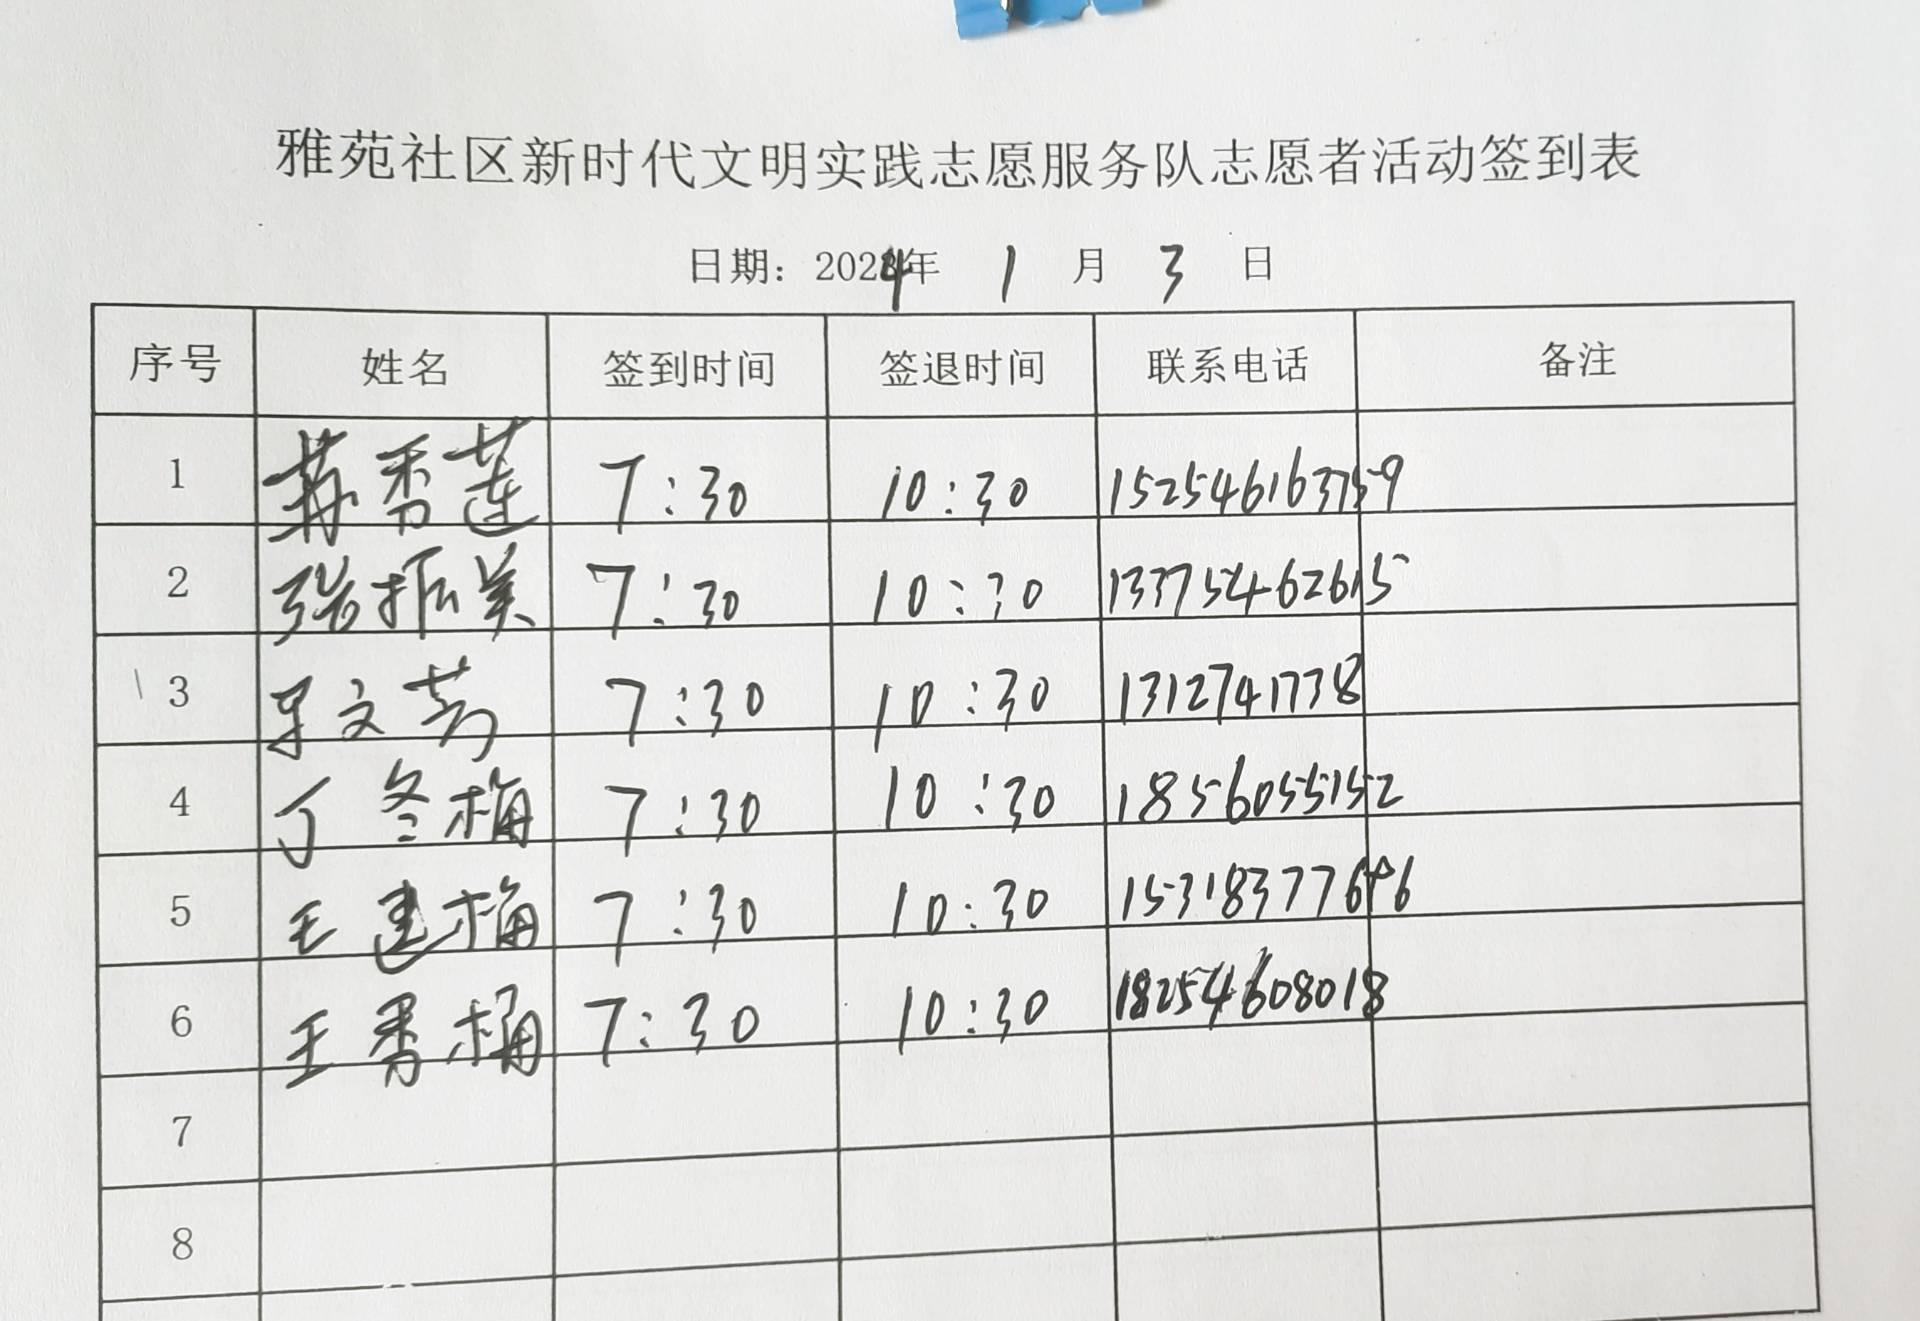 雅苑社区新时代文明实践志愿服务队志愿者活动签到表
日期：2024年 1 月 3 日
序号 姓名 签到时间 签退时间 联系电话 备注
1 苏秀莲 7:30 10:30 15254616759
2 张振美 7:30 10:30 13375462615
3 文芳 7:30 10:30 1312741738
4 丁冬梅 7:30 10:30 18560555152
5 王建梅 7:30 10:30
6 王秀梅 7:30 10:30 18254608018
7
8